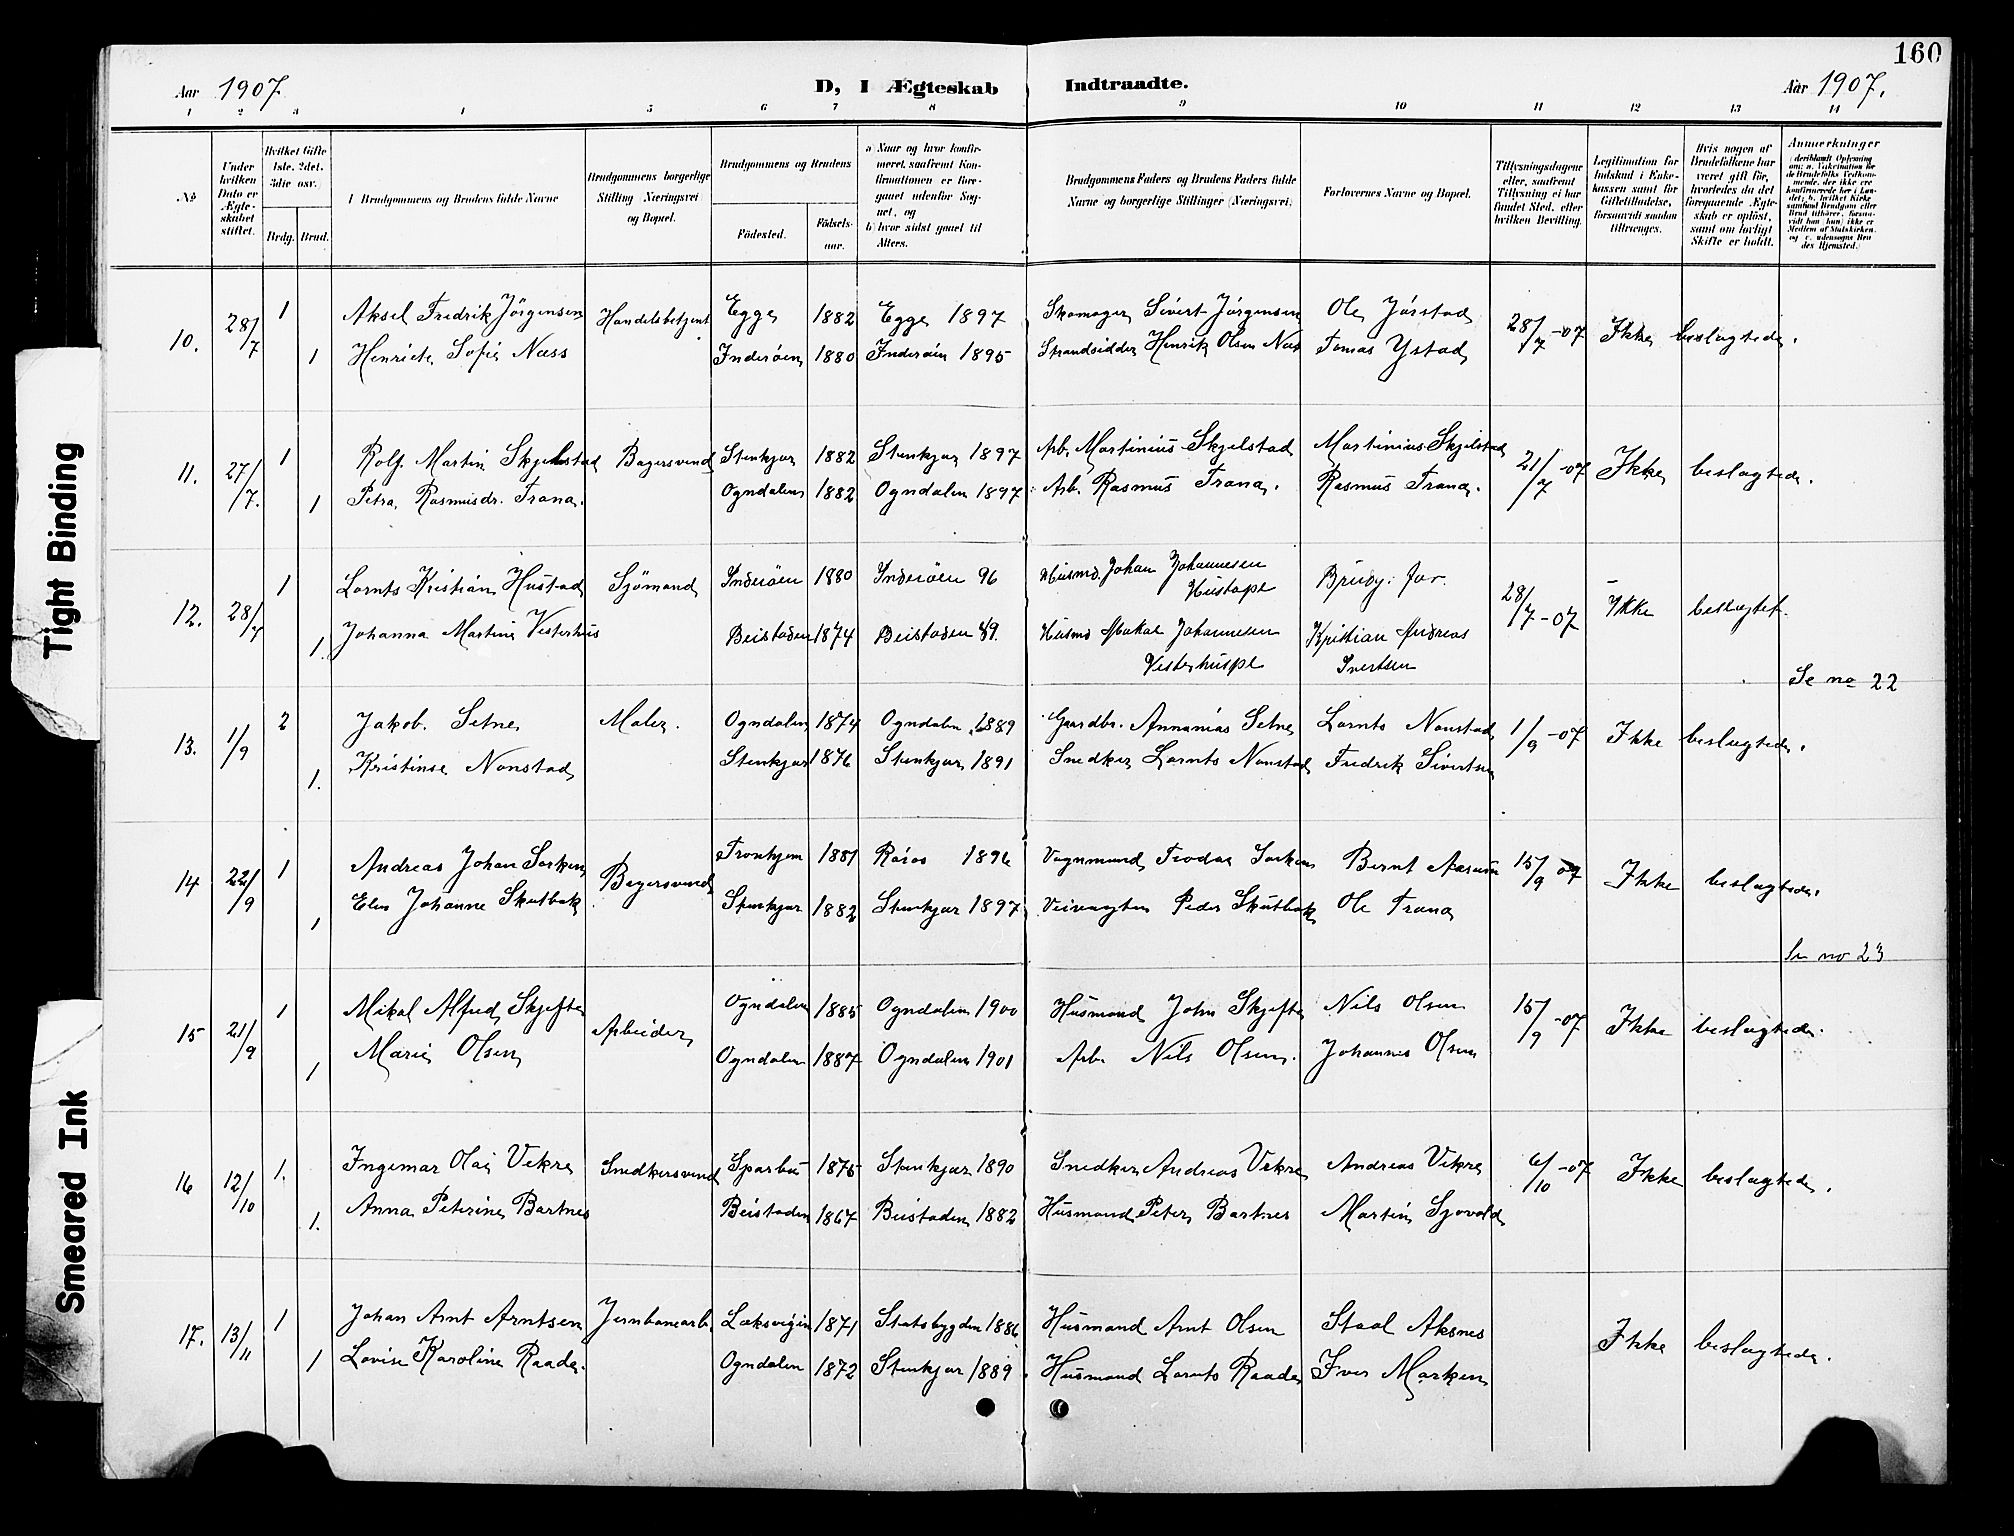 160
Aar 1907
D, I Ægteskab Indtraadte.
Aar 1907.
1 2 3 4 5 6 7 8 9 10 11 12 13 14
No
Under hvilken Dato er Ægteskabet stiftet.
Hvilket Gifte 1ste, 2det, 3die osv.
Brdg. Brud.
Brudgommens og Brudens fulde Navne
Brudgommens borgerlige Stilling (Næringsvei) og Bopæl.
Brudgommens og Brudens
Fødested.
Fødselsaar.
a Naar og hvor konfirmeret, saafremt Konfirmationen er foregaaet udenfor Sognet, og
b hvor sidst gaaet til Alters.
Brudgommens Faders og Brudens Faders fulde Navne og borgerlige Stillinger (Næringsvei)
Forlovernes Navne og Bopæl.
Tillysningsdagene eller, saafremt Tillysning ei har fundet Sted, efter hvilken Bevilling.
Legitimation for Indskud i Enkekassen samt for Giftetilladelse, forsaavidt saadan tiltrænges.
Hvis nogen af Brudefolkene har været gift før, hvorledes da det foregaaende Ægteskab er opløst, samt om lovligt Skifte er holdt.
Anmerkninger
10. 28/7 1 Aksel Fredrik Jörgensen Handelsbetjent Egge 1882 Egge 1897 Skomager Sivert Jörgensen Ole Jörstad 28/7-07 Ikke beslægtede.
1 Henriete Sofie Næss Inderöen 1880 Inderöen 1895 Strandsidder Henrik Olsen Næss Tomas Ystad
11. 27/7. 1 Rolf Martin Skjelstad Bagersvend Stenkjær 1882 Stenkjær 1897 Arb. Martinius Skjelstad Martinius Skjelstad 21/7-07 Ikke beslægtede.
1 Petra Rasmusdr. Trana. Ogndalen 1882 Ogndalen 1897 Arb. Rasmus Trana. Rasmus Trana.
12. 28/7 1 Lornts Kristian Hustad Sjömand Inderöen 1880 Inderöen 96 Husmd. Johan Johannesen Brudg. far. 28/7-07 Ikke beslægtet.
Hustadpl
1. Johanna Martine Vesterhus Beistaden 1874 Beistaden 89. Husmd Mikal Johannesen Kristian Andreas
Vesterhuspl Sivertsen
Se no 22
13. 1/9 2 Jakob Setne Maler. Ogndalen 1874 Ogndalen 1889 Gaardbr. Annanias Setne Lornts Nonstad 1/9-07 Ikke beslægtede.
1. Kristinse Nonstad Stenkjær 1876 Stenkjær 1891 Snedker Lornts Nonstad Fredrik Sivertsen
14 22/9 1 Andreas Johan Bagersvend Tronhjem 1881 Röros 1896 Vognmand Bernt 15/9 07 Ikke beslægtede.
1 Elen Johanne Skutbak Stenkjær 1882 Stenkjær 1897 Veivogter Peder Skutbak Ole Trana
Se no 23
15 21/9 1 Mikal Alfred Skjefte Arbeider Ogndalen 1885 Ogndalen 1900 Husmand John Skjefte Nils Olsen 15/9-07 Ikke beslægtede.
1 Marie Olsen Ogndalen 1887 Ogndalen 1901 Arb. Nils Olsen. Johannes Olsen
16 12/10 1. Ingemar Olai Vekre Snedkersvend Sparbu 1875 Stenkjær 1890 Snedker Andreas Vekre Andreas Vekre 6/10-07 Ikke beslægtede.
1. Anna Peterine Bartnes Beistaden 1867 Beistaden 1882 Husmand Peter Bartnes Martin Sjovold
17. 13/11 1 Johan Arnt Arntsen Jernbanearb. Leksvigen 1871 Statsbygden 1886 Husmand Arnt Olsen Staal Aksnes Ikke beslægtede.
1 Lovise Karoline Raade. Ogndalen 1872 Stenkjær 1889. Husmand Lornts Raade Iver Marken
Tight Binding
Smeared Ink